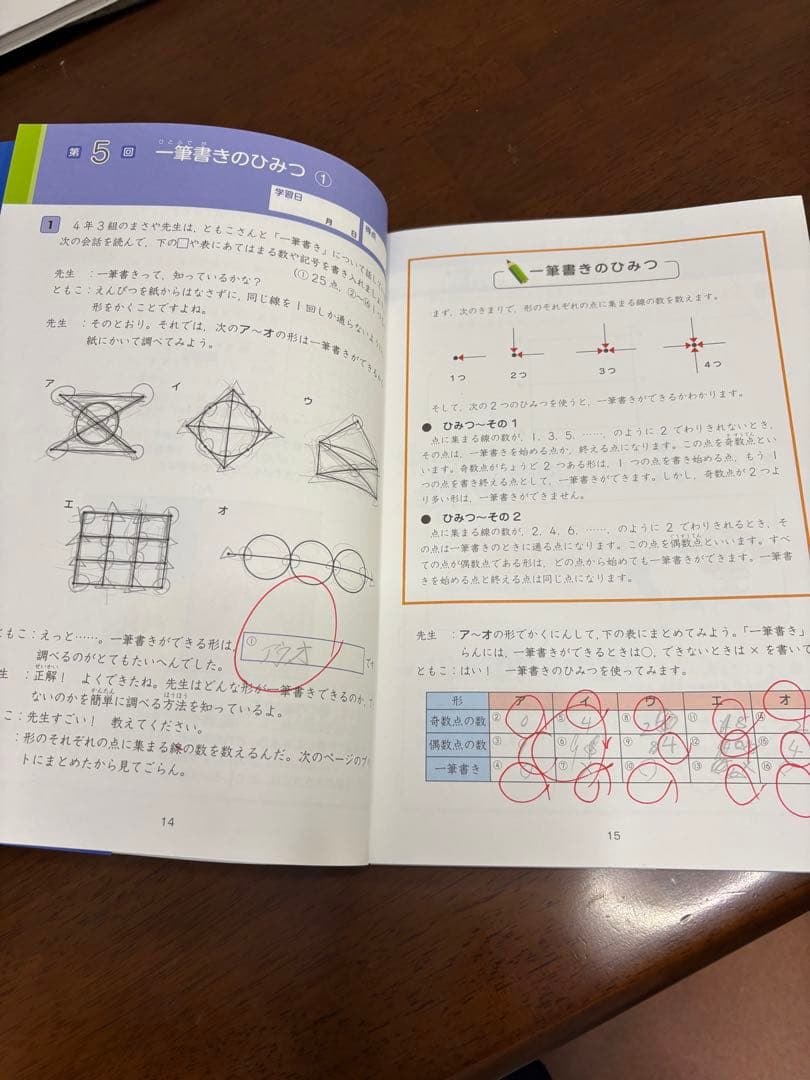 第5回 一筆書きのひみつ ①
ひとふでが
学習日
月 日
得点
1 4年3組のまさや先生は、ともこさんと「一筆書き」について話して
次の会話を読んで、下の□や表にあてはまる数や記号を書き入れましょ
(①25点、②〜⑯1つ
先生 :一筆書きって、知っているかな?
ともこ:えんぴつを紙からはなさずに、同じ線を1回しか通らないように
形をかくことですよね。
先生 :そのとおり。それでは、次のア〜オの形は一筆書きができるか
紙にかいて調べてみよう。
ア
イ
ウ
エ
オ
ともこ:えっと……。一筆書きができる形は、
① アウオ
です
調べるのがとてもたいへんでした。
せいかい
生 :正解! よくできたね。先生はどんな形が一筆書きできるのか、
かんたん ほうほう
ないのかを簡単に調べる方法を知っているよ。
こ:先生すごい! 教えてください。
:形のそれぞれの点に集まる線の数を数えるんだ。次のページの
トにまとめたから見てごらん。
14
一筆書きのひみつ
まず、次のきまりで、形のそれぞれの点に集まる線の数を数えます。
1つ 2つ 3つ 4つ
そして、次の2つのひみつを使うと、一筆書きができるかわかります。
● ひみつ〜その1
点に集まる線の数が、1、3、5、……、のように2でわりきれないとき、
その点は、一筆書きを始める点か、終える点になります。この点を奇数点とい
います。奇数点がちょうど2つある形は、1つの点を書き始める点、もう1
つの点を書き終える点として、一筆書きができます。しかし、奇数点が2つよ
り多い形は、一筆書きができません。
● ひみつ〜その2
点に集まる線の数が、2、4、6、……、のように2でわりきれるとき、そ
の点は一筆書きのときに通る点になります。この点を偶数点といいます。すべ
ての点が偶数点である形は、どの点から始めても一筆書きができます。一筆書
きを始める点と終える点は同じ点になります。
先生 :ア〜オの形でかくにんして、下の表にまとめてみよう。「一筆書き」
らんには、一筆書きができるときは○、できないときは×を書いて
ともこ:はい! 一筆書きのひみつを使ってみます。
形 ア イ ウ エ オ
奇数点の数 ② 0 ⑤ 4 ⑧ ⑪ 8 ⑭
偶数点の数 ③ ⑥ ⑨ 4 ⑫ ⑮ 4
一筆書き ④ ⑦ ⑩ ⑬ ⑯
15